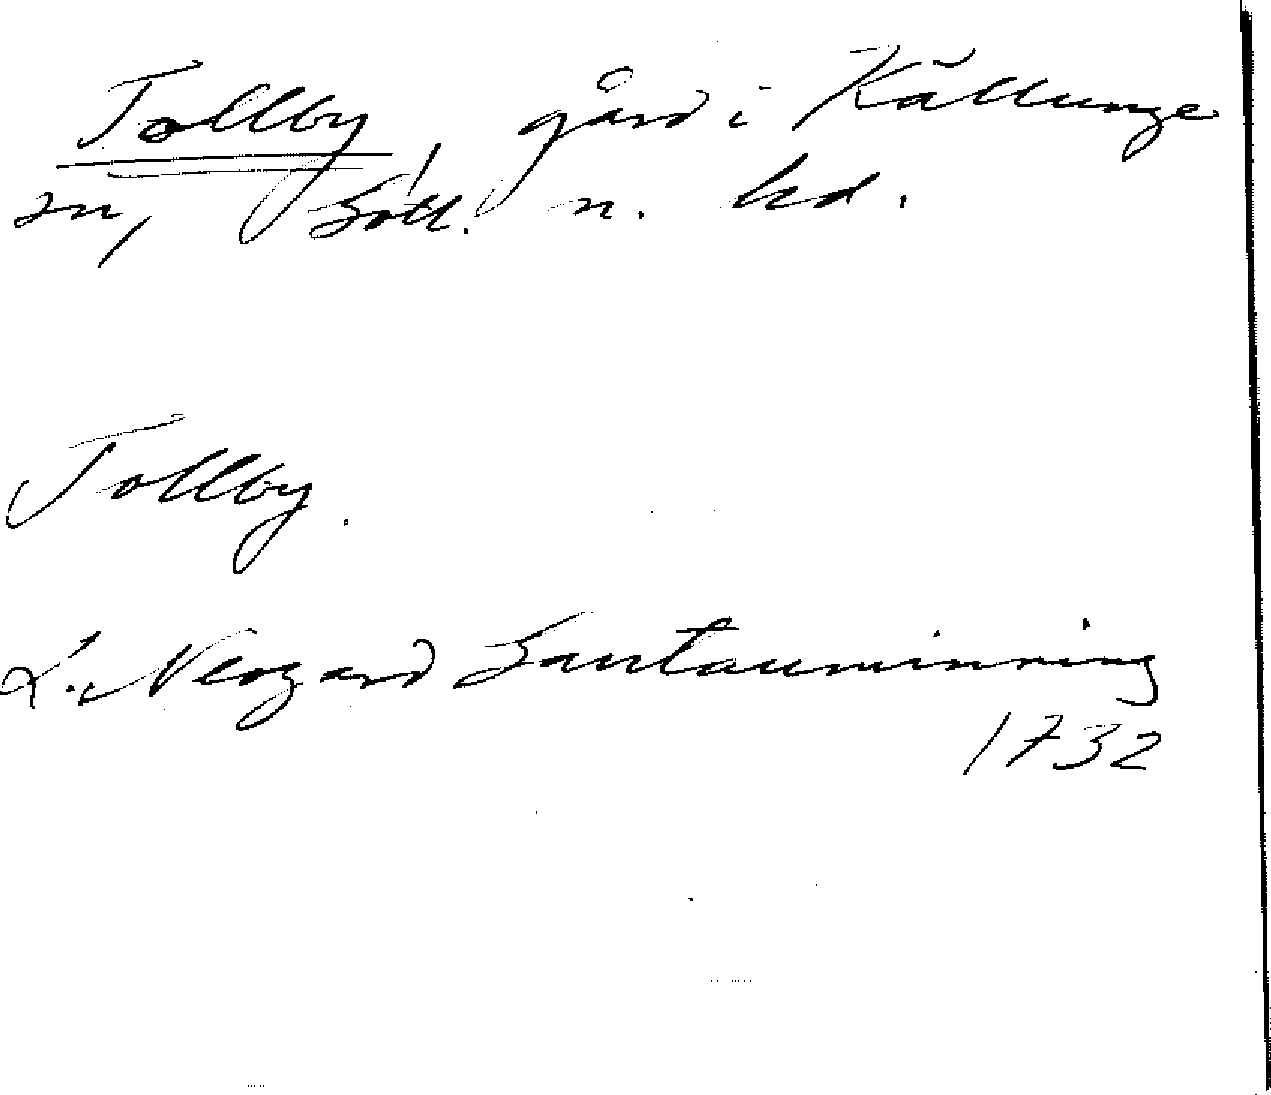 Tollby, gård i Källunge
sn, Gotl. n. hd.
Tollby.
L. Neogard Gautauminning
1732